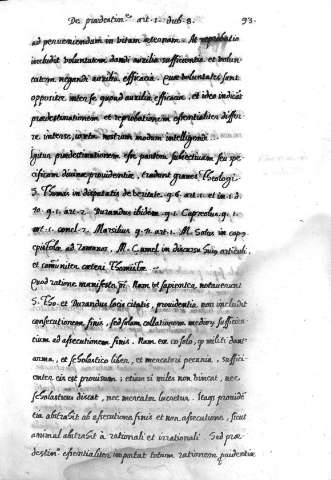 De praedestin.ne art. 1. dub. 8. 93.
ad perveniendam in vitam aeternam. At reprobatio
includit voluntatem dandi auxilia sufficientia et volun
tatem negandi auxilia efficacia. Quae voluntates sunt
oppositae inter se quoad auxilia efficacia, et ideo indicat
praedestinationem et reprobationem essentialiter differ
re inter se, iuxta nostrum modum intelligendi.
Igitur praedestinationem esse partem subiectivam seu spe
cificam divinae providentiae, tradunt graves Theologi
S. Thomas in disputatis de veritate. q. 6. art. 1. et in 1. d.
40. q. 1. art. 2. Durandus ibidem. q. 1. Capreolus. q. 1.
art. 1. concl. 2. Marsilius q. 41. art. 1. M. Sotus in cap.
epistolae ad romanos. M. Cumel in discursu huius articuli,
et comuniter caeteri Thomistae.
Quod ratione manifesta Nam et sapienter notaverunt
S. Tho. et Durandus locis citatis, providentia non includit
consecutionem finis, sed solam collationem mediorum sufficien
tium ad assecutionem finis. Nam ex eo solo, quod militi dant
arma, et scholastico liber, et mercatori pecunia, suffici-
enter eis est provisum; etiam si miles non vincat, nec
scholasticus discat, nec mercator lucretur. Itaque provid̃e
tia abstrahit ab assecutione finis et non assecutione, sicut
animal abstrahit à rationali et irrationali. Sed prae
destin.o essentialiter importat totum rationem providentiae